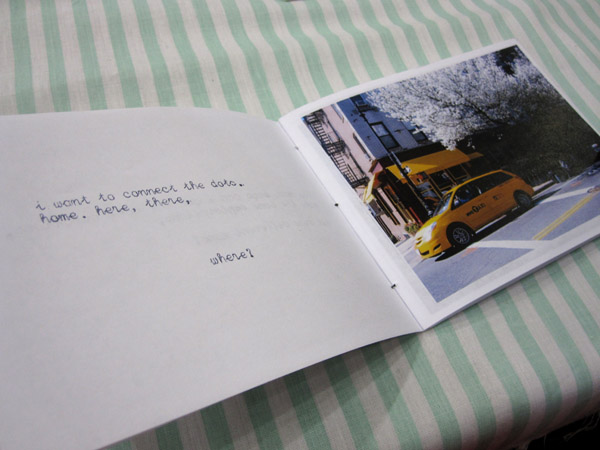 i want to connect the dots.
home. here, there,
where?